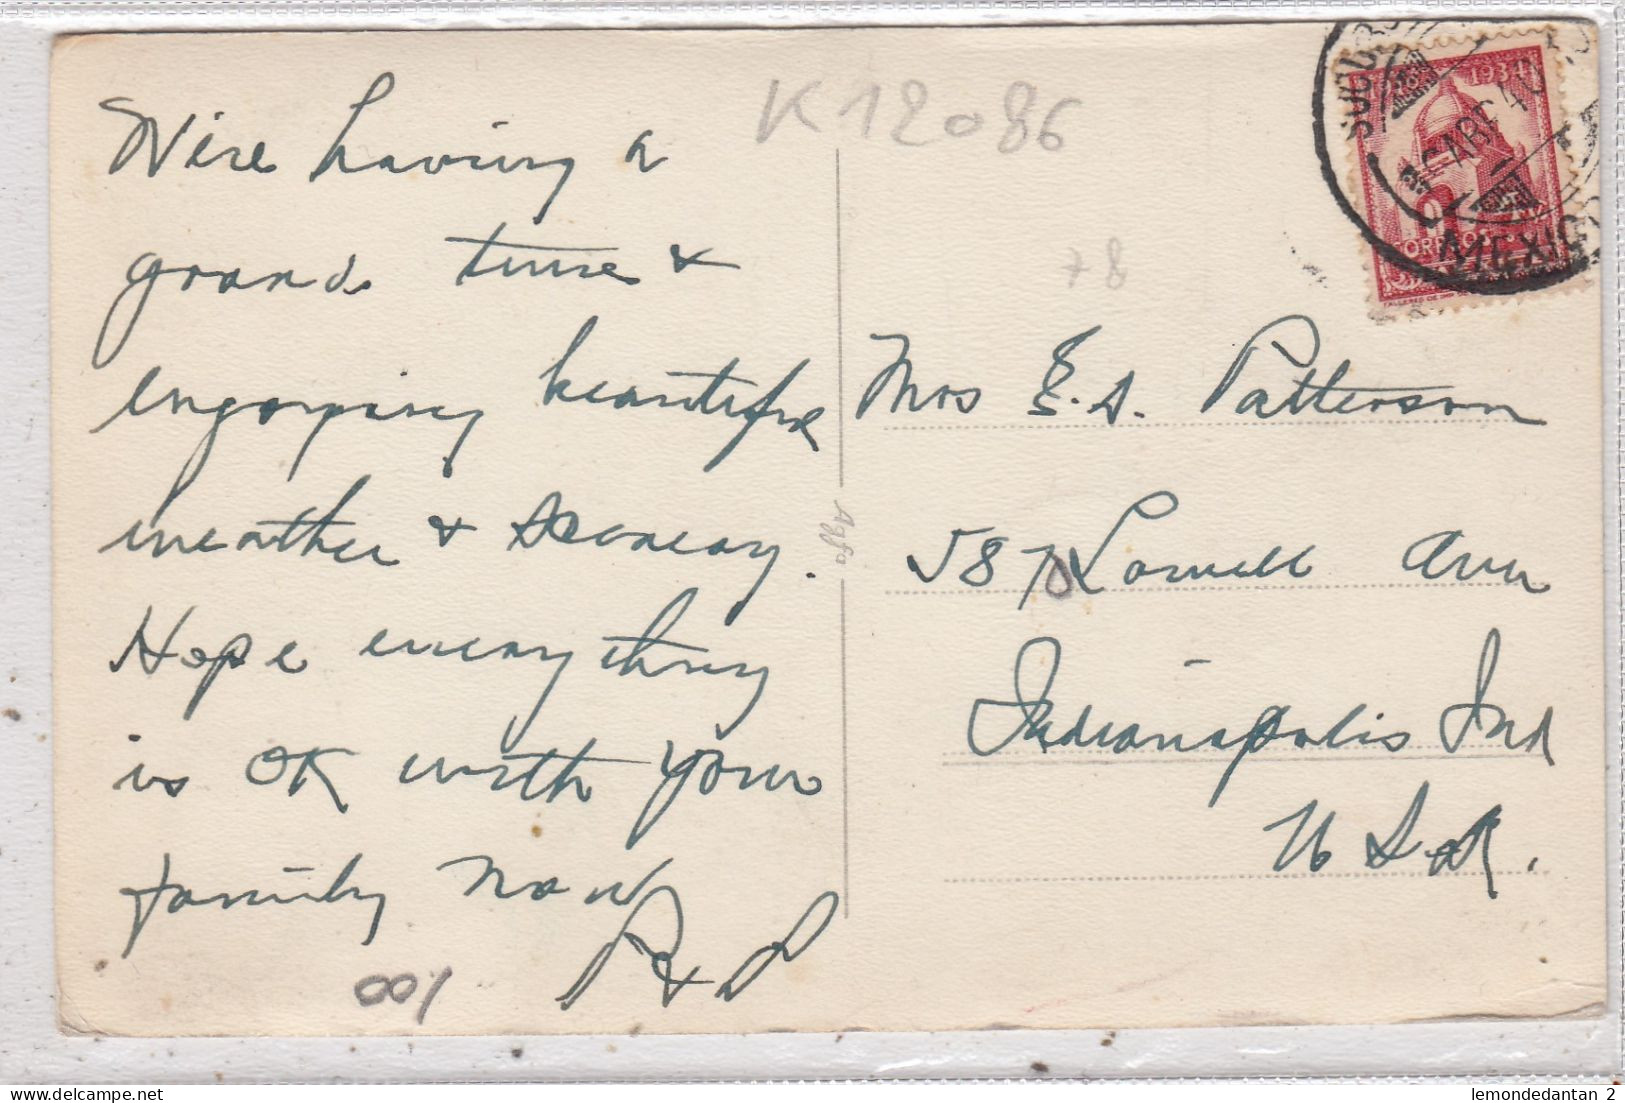 We're having a
grand time &
enjoying beautiful
weather & scenery.
Hope everything
is OK with your
family now
R & D
001
K12086
78
Agfa
Mrs E. S. Patterson
587 Lowell Ave
Indianapolis Ind
U S A.
1934
CORREOS
MEXICO
delcampe.net
lemondedantan 2